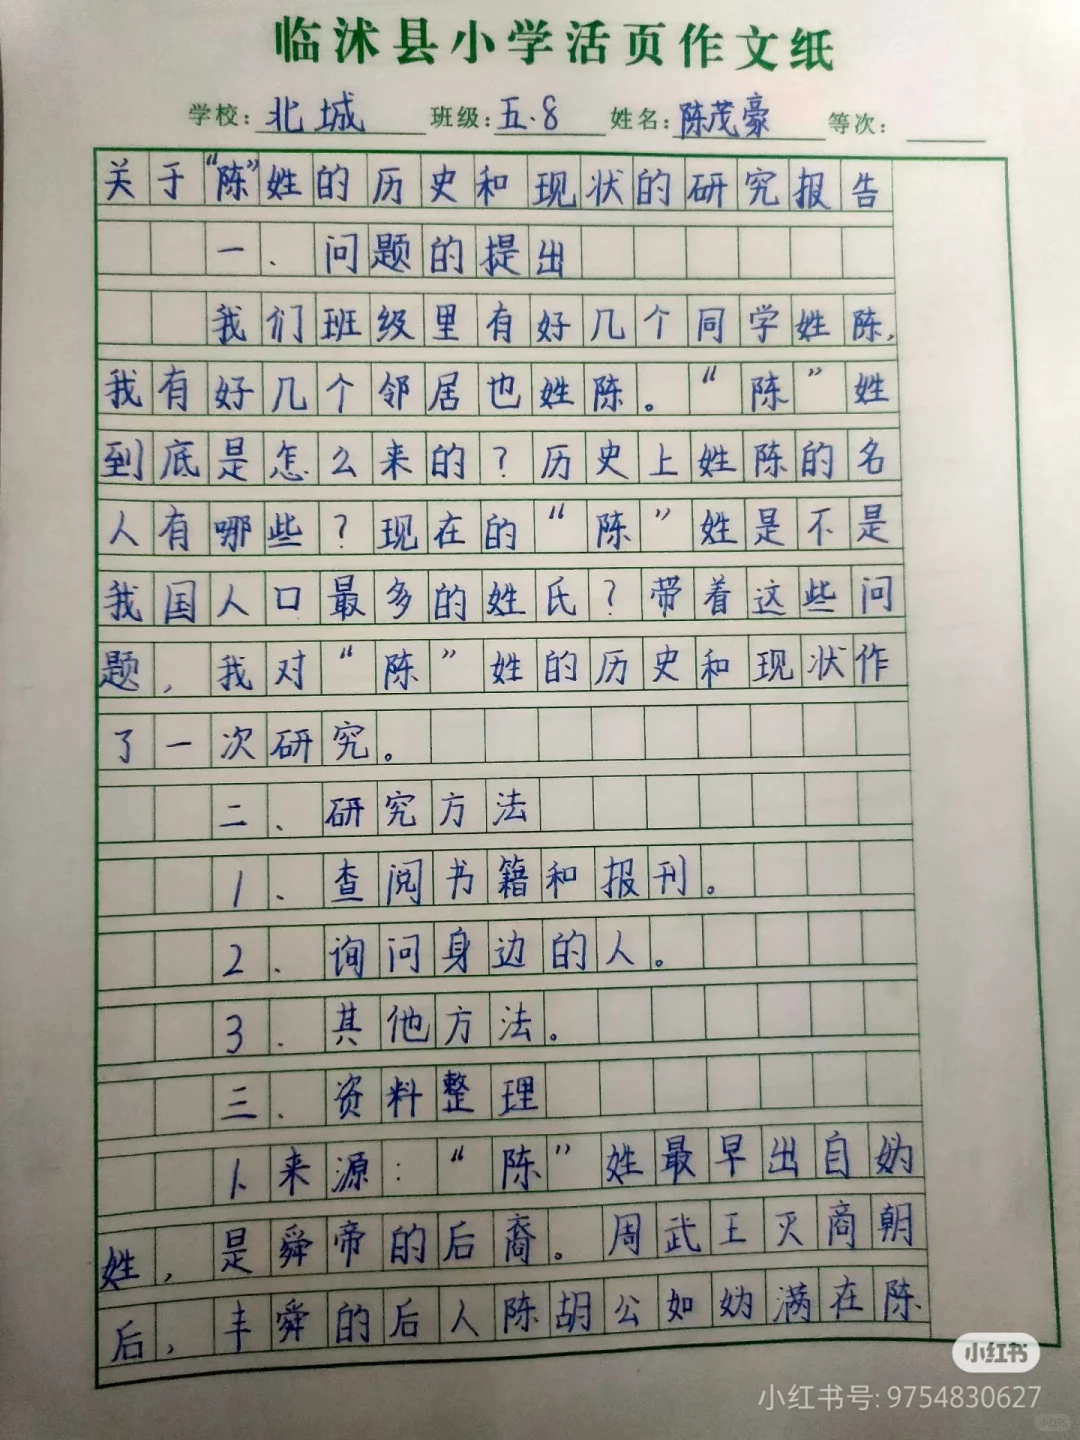 临沭县小学活页作文纸
学校：北城 班级：五.8 姓名：陈茂豪 等次：
关于“陈”姓的历史和现状的研究报告
一、问题的提出
我们班级里有好几个同学姓陈，
我有好几个邻居也姓陈。“陈”姓
到底是怎么来的？历史上姓陈的名
人有哪些？现在的“陈”姓是不是
我国人口最多的姓氏？带着这些问
题，我对“陈”姓的历史和现状作
了一次研究。
二、研究方法
1、查阅书籍和报刊。
2、询问身边的人。
3、其他方法。
三、资料整理
1、来源：“陈”姓最早出自妫
姓，是舜帝的后裔。周武王灭商朝
后，丰舜的后人陈胡公如妫满在陈
小红书
小红书号: 9754830627